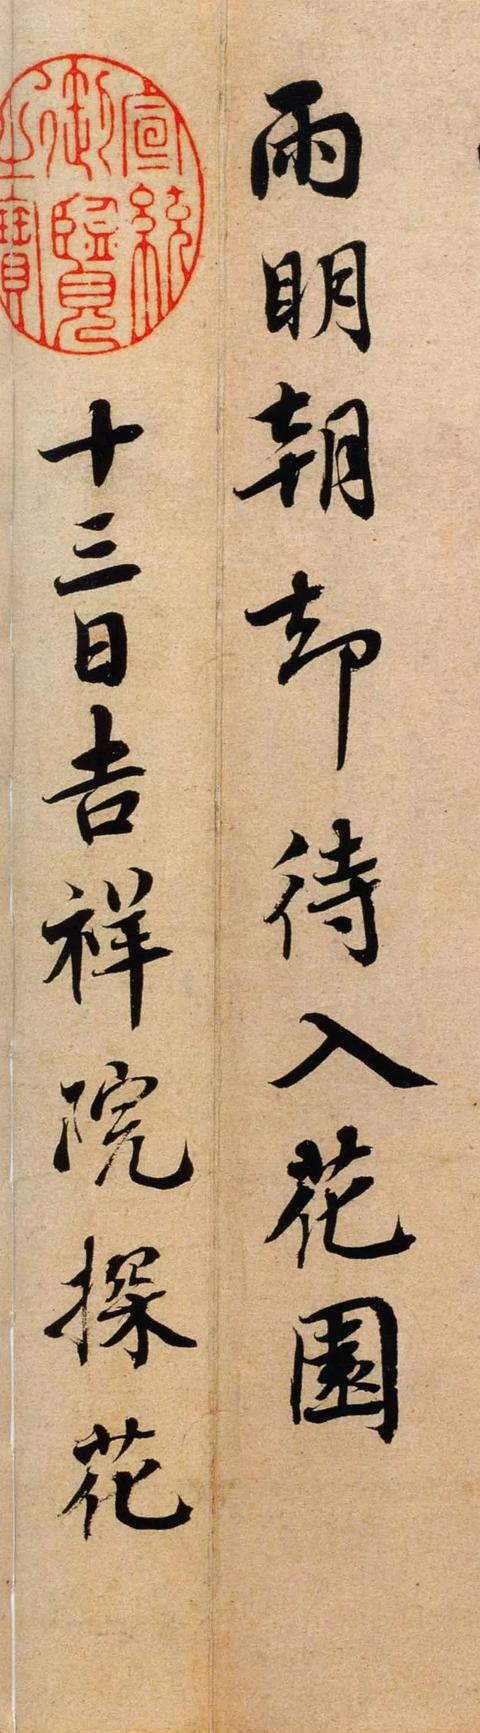 雨明朝却待入花園
十三日吉祥院探花
宣統御覽之寶